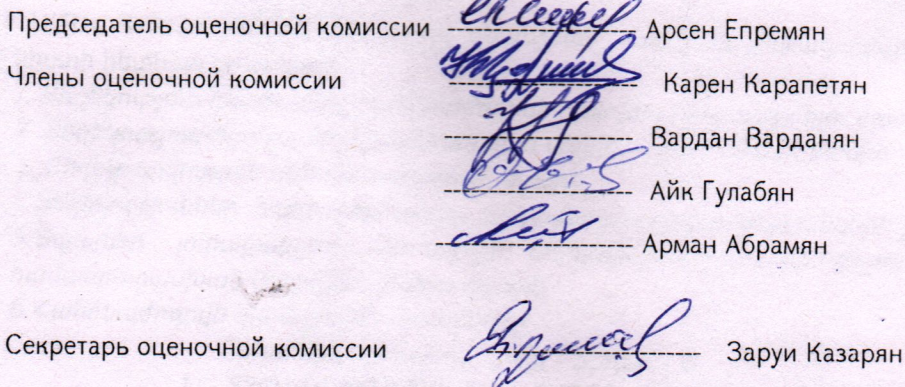 Председатель оценочной комиссии Арсен Епремян
Члены оценочной комиссии Карен Карапетян
Вардан Варданян
Айк Гулабян
Арман Абрамян
Секретарь оценочной комиссии Заруи Казарян